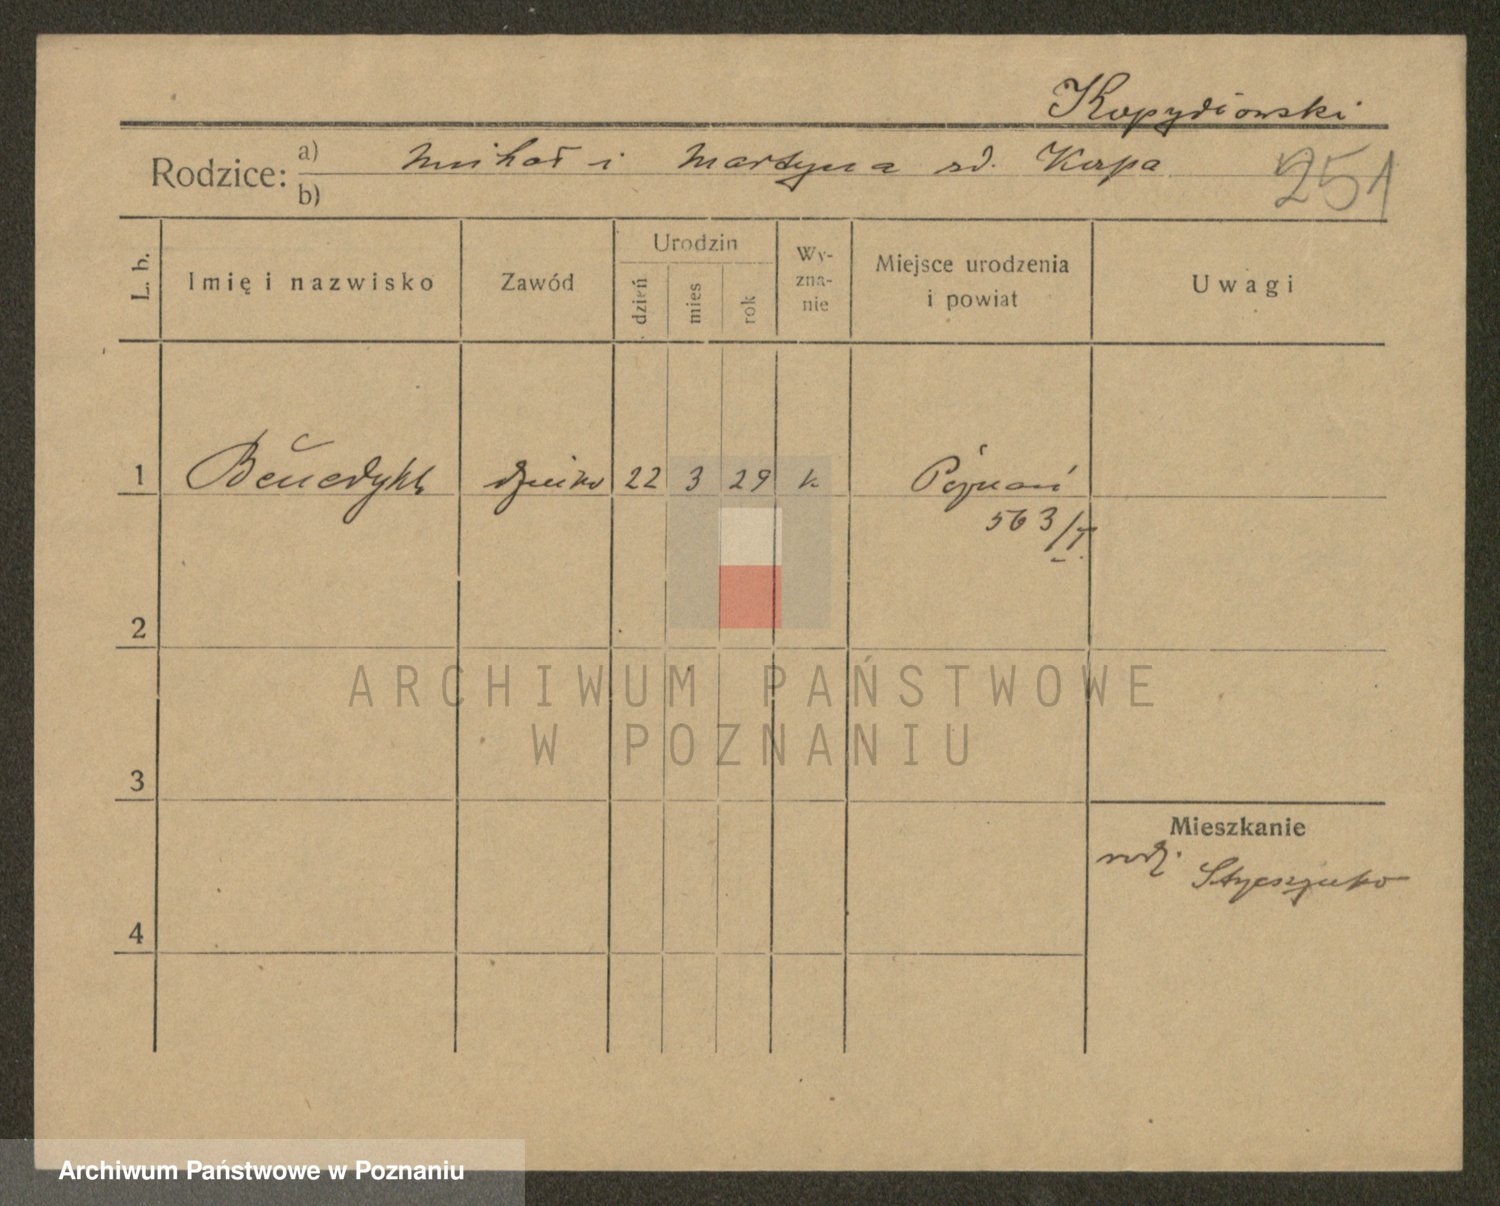 Kopydłowski
Rodzice: a) Michał i Martyna rd. Karpa 251
b)
L. b. Imię i nazwisko Zawód Urodzin dzień mies rok Wy-zna-nie Miejsce urodzenia i powiat Uwagi
1 Benedykt dziecko 22 3 29 k. Poznań
563/I
2
3
4
Mieszkanie
rodz.
ARCHIWUM PAŃSTWOWE
W POZNANIU
Archiwum Państwowe w Poznaniu